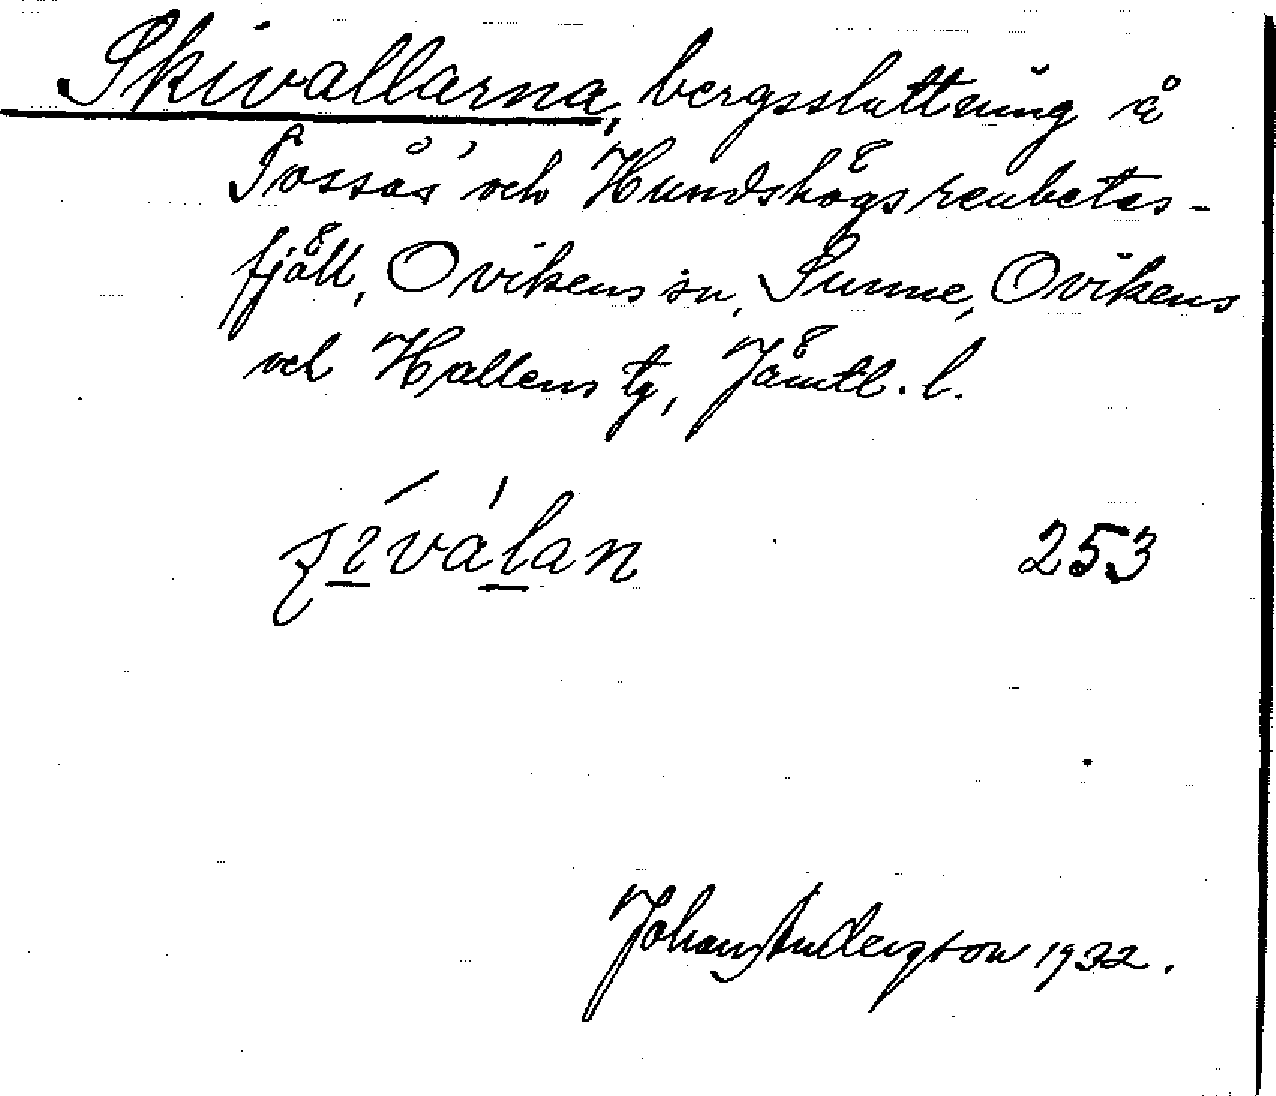 Skivallarna, bergssluttning å
Fossås' och Hundshögs renbetes-
fjäll, Ovikens sn, Sunne, Ovikens
och Hallens tg, Jämtl. l.
ʃí̲vál̲an 253
Johan Anderzson 1932.